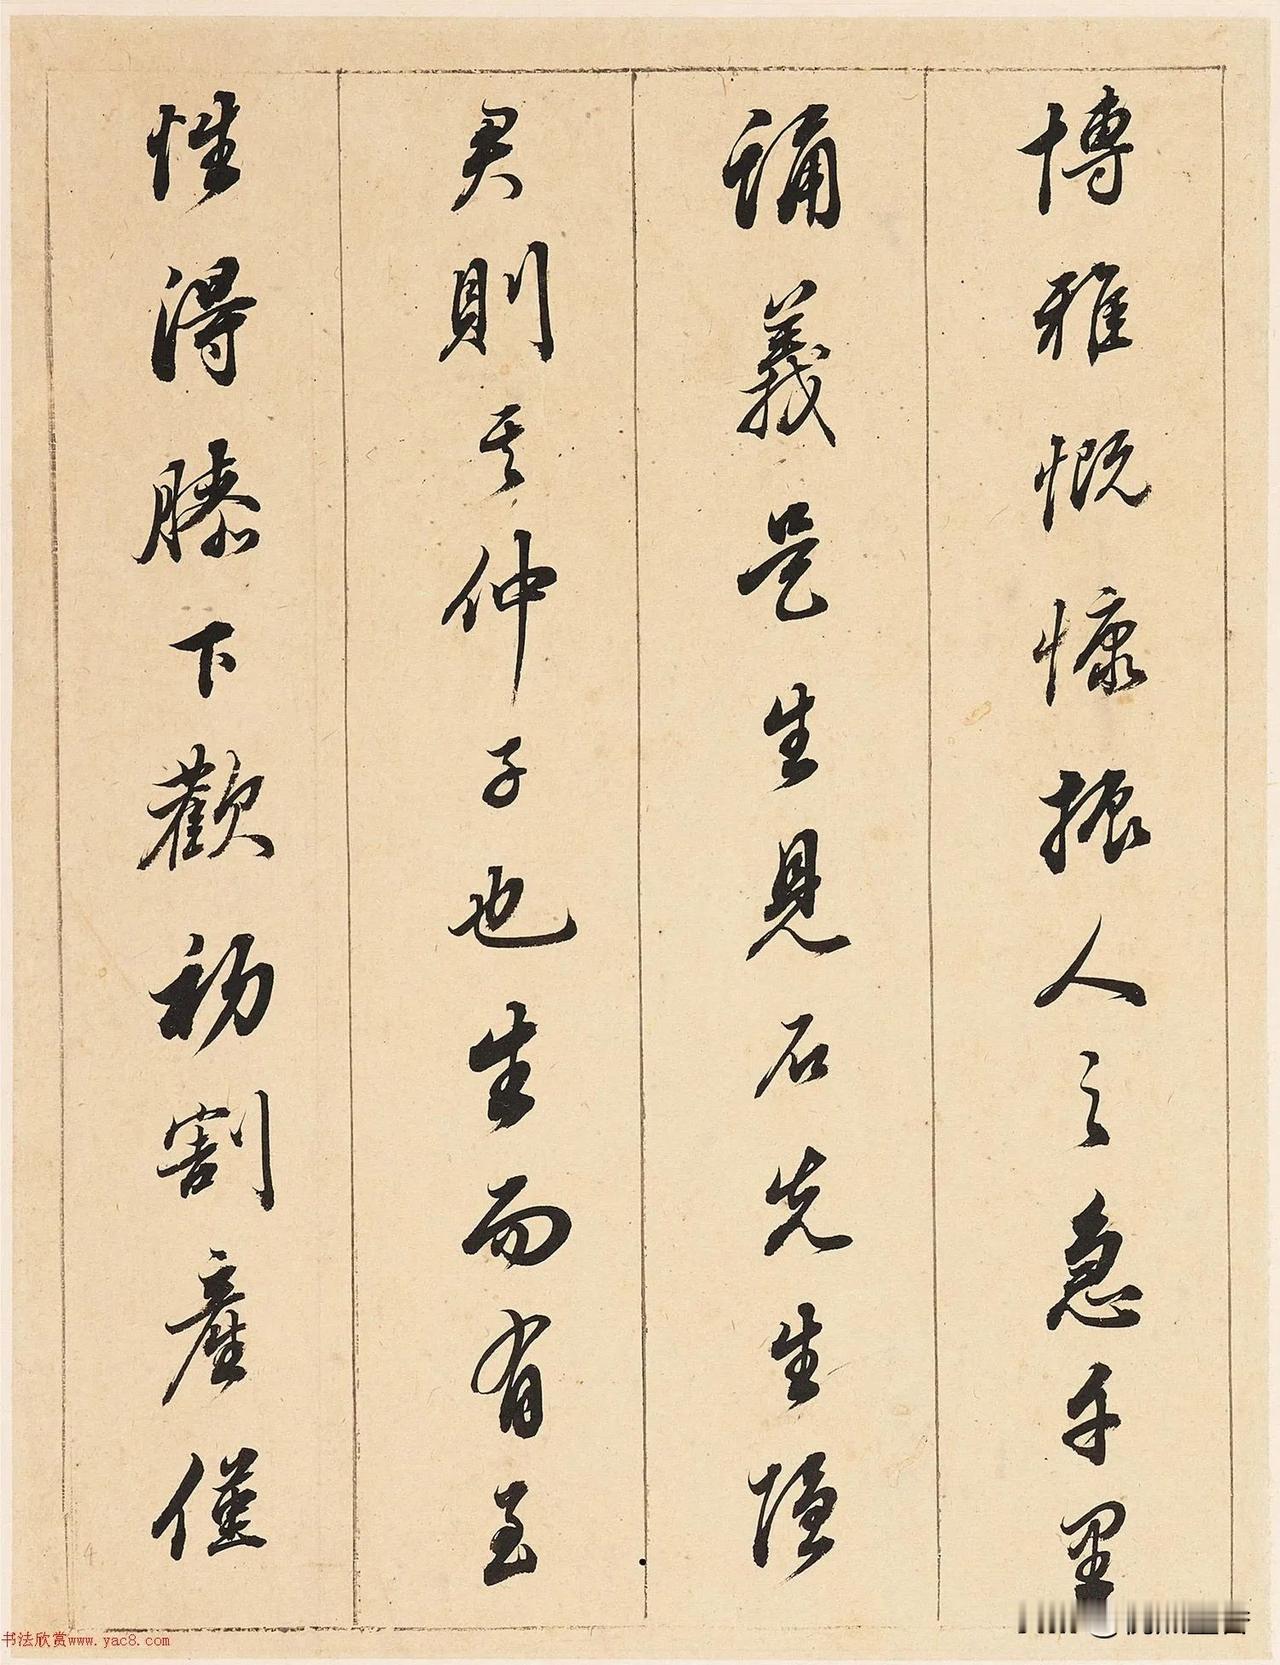 博雅慨慷振人之急千里
誦義是生見石先生墟
君則其仲子也生而有至
性得膝下歡初割產僅
书法欣赏www.yac8.com